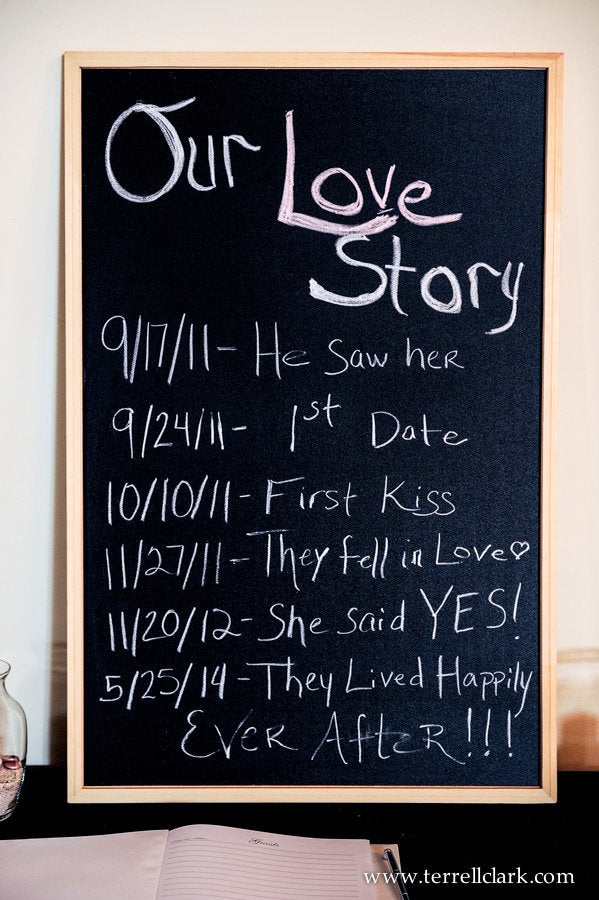 Our Love
Story
9/17/11- He Saw her
9/24/11- 1st Date
10/10/11- First Kiss
11/27/11- They fell in Love♡
11/20/12- She said YES!
5/25/14- They Lived Happily
Ever After!!!
Guests
www.terrellclark.com